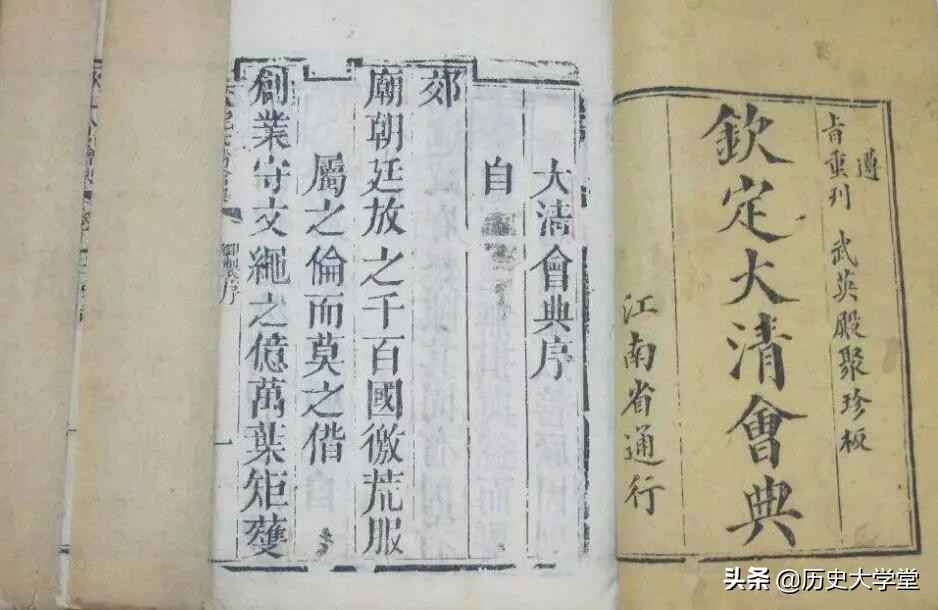 遵
旨重刊 武英殿聚珍板
欽定大清會典
江南省通行
大清會典序
自
郊
廟朝廷放之千百國徼荒服
屬之倫而莫之偕
創業守文繩之億萬葉矩蠖
頭条 @历史大学堂